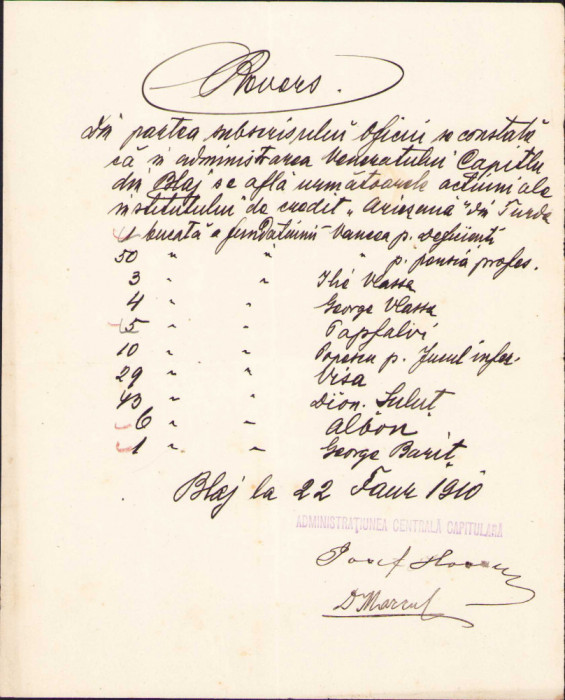 Revers.
Din partea subscrisului Oficiu se constată
că in administrarea Veneratului Capitlu
din Blaj se află următoarele acțiuni ale
institutului de credit „Arieșana" din Turda
1 bucată a fundațiunii Vancea p. deficienți
50 " " " p. pensia profes.
3 " " Ilie Vlassa
4 " " George Vlassa
5 " " Papfalvi
10 " " Popescu p.
29 " " Visa
43 " " Dion. Suluț
6 " " Albon
1 " " George Bariț
Blaj la 22 Faur 1910
ADMINISTRAȚIUNEA CENTRALĂ CAPITULARĂ
Iosif